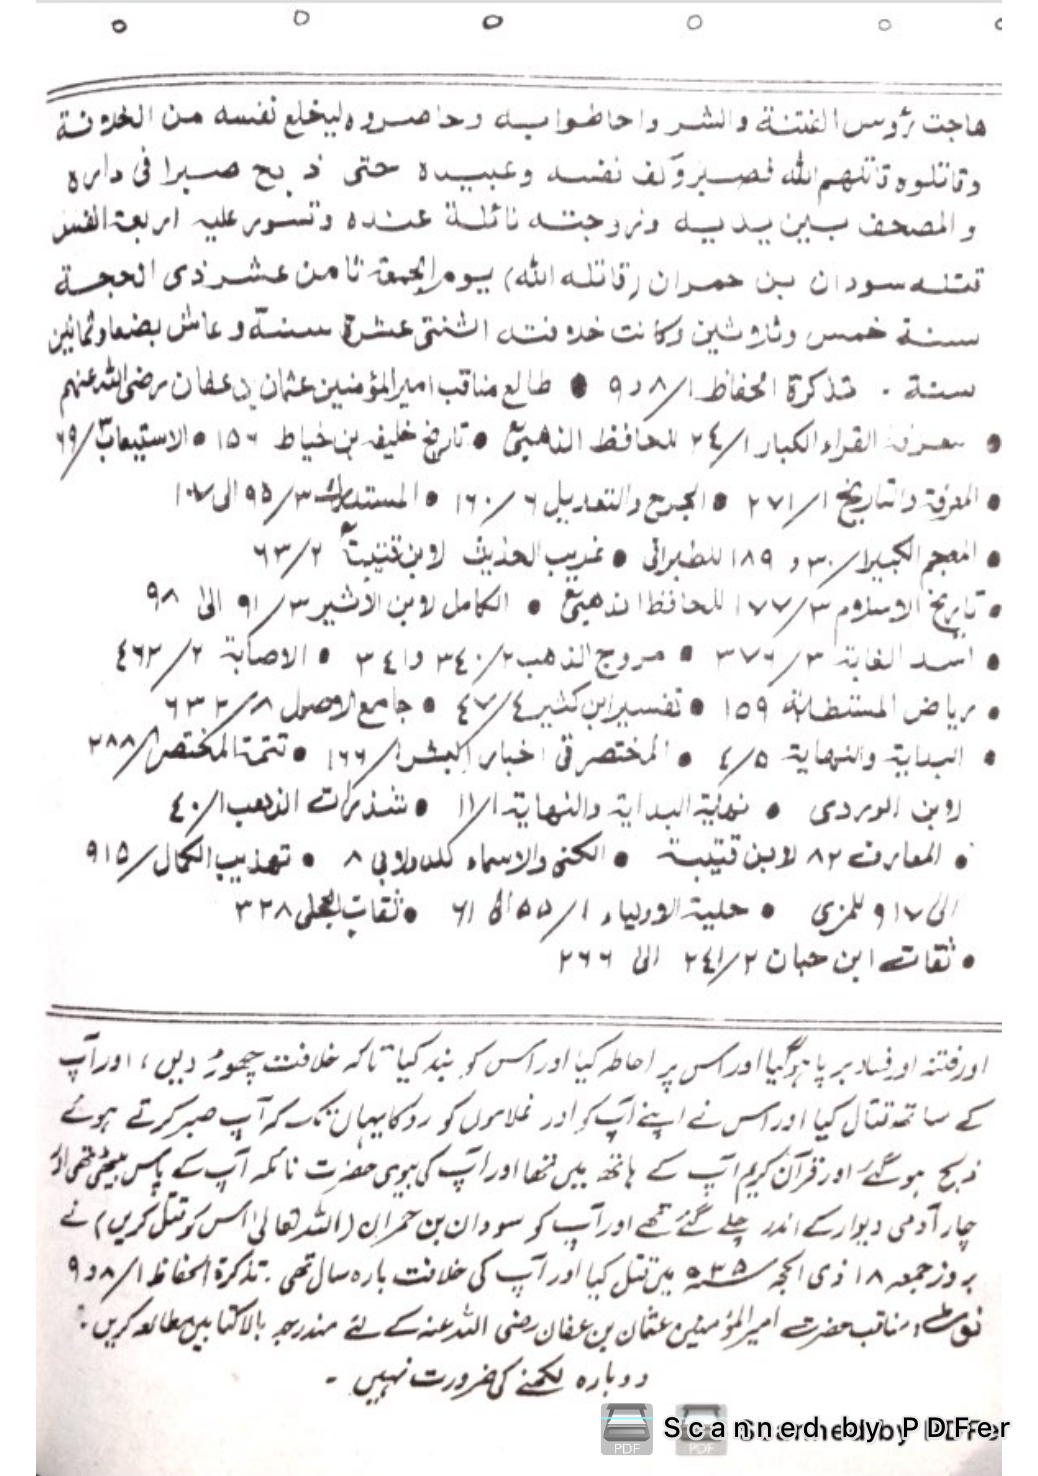 هاجت رؤوس الفتنة والشر واحاطوا به وحاصروه ليخلع نفسه من الخلافة
وقاتلوه قاتلهم الله فصبر وكف نفسه وعبيده حتى ذبح صبرا فى داره
والمصحف بين يديه وزوجته نائلة عنده وتسور عليه اربعة انفس
قتله سودان بن حمران (قاتله الله) يوم الجمعة ثامن عشر ذى الحجة
سنة خمس وثلاثين وكانت خلافته اثنتى عشرة سنة وعاش بضعا وثمانين
سنة . تذكرة الحفاظ ١/ ٨ و ٩ ● طالع مناقب امير المؤمنين عثمان بن عفان رضى الله عنهم
● معرفة القراء الكبار ١/ ٢٤ للحافظ الذهبىؒ ● تاريخ خليفه بن خياط ١٥٦ ● الاستيعاب ٣/ ٦٩
● المعرفة والتاريخ ١/ ٢٧١ ● الجرح والتعديل ٦/ ١٦٠ ● المستدرك ٣/ ٩٥ الى ١٠٧
● المعجم الكبير ١/ ٣٠ و ١٨٩ للطبرانى ● غريب الحديث لابن قتيبةؒ ٢/ ٦٣
● تاريخ الاسلام ٣/ ١٧٧ للحافظ الذهبىؒ ● الكامل لابن الاثير ٣/ ٩١ الى ٩٨
● أسد الغابة ٣/ ٣٧٦ ● مروج الذهب ٢/ ٣٤٠ و ٣٤١ ● الاصابة ٢/ ٤٦٢
● رياض المستطابة ١٥٩ ● تفسير ابن كثير ٤/ ٤٧ ● جامع الاصول ٨/ ٦٣٢
● البداية والنهاية ٥/ ٤ ● المختصر فى اخبار البشر ١/ ١٦٦ ● تتمة المختصر ١/ ٢٨٨
لابن الوردى ● نهاية البداية والنهاية ١/ ١١ ● شذرات الذهب ١/ ٤٠
● المعارف ٨٢ لابن قتيبة ● الكنى والاسماء للدولابى ٨ ● تهذيب الكمال/ ٩١٥
الى ٩١٧ للمزى ● حلية الاولياء ١/ ٥٥ الى ٦١ ● ثقات العجلى ٣٢٨
● ثقات ابن حبان ٢/ ٢٤١ الى ٢٦٦
اور فتنہ اور فساد برپا ہوگیا اور اس پر احاطہ کیا اور اس کو بند کیا تاکہ خلافت چھوڑ دیں ، اور آپ
کے ساتھ قتال کیا اور اس نے اپنے آپ کو اور غلاموں کو روکا یہاں تک کہ آپ صبر کرتے ہوئے
ذبح ہوگئے اور قرآن کریم آپ کے ہاتھ میں تھا اور آپ کی بیوی حضرت نائلہ آپ کے پاس بیٹھی تھی اور
چار آدمی دیوار کے اندر چلے گئے تھے اور آپ کو سودان بن حمران (اللہ تعالیٰ اس کو قتل کریں) نے
بروز جمعہ ١٨ ذی الحجہ سنہ ٣٥ھ میں قتل کیا اور آپ کی خلافت بارہ سال تھی . تذکرۃ الحفاظ ١/ ٨ و ٩
نوٹ : مناقب حضرت امیر المؤمنین عثمان بن عفان رضی اللہ عنہ کے لئے مندرجہ بالا کتابیں مطالعہ کریں .
دوبارہ لکھنے کی ضرورت نہیں ۔
Scanned by PDFer
Scanned by PDFer